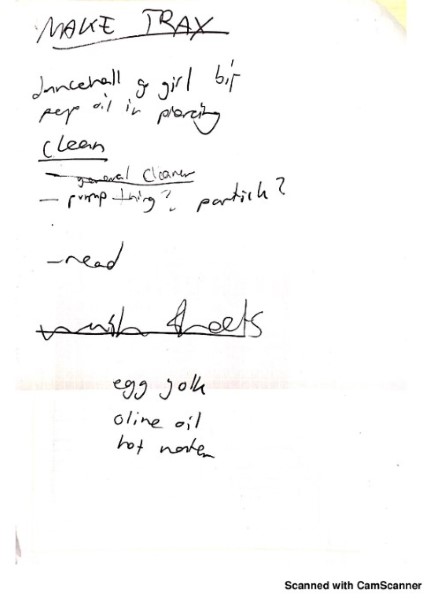 MAKE TRAX
dancehall go girl bit
pep oil in piercing
clean
- general cleaner
- pump thing? partick?
- read
wash sheets
egg yolk
olive oil
hot water
Scanned with CamScanner